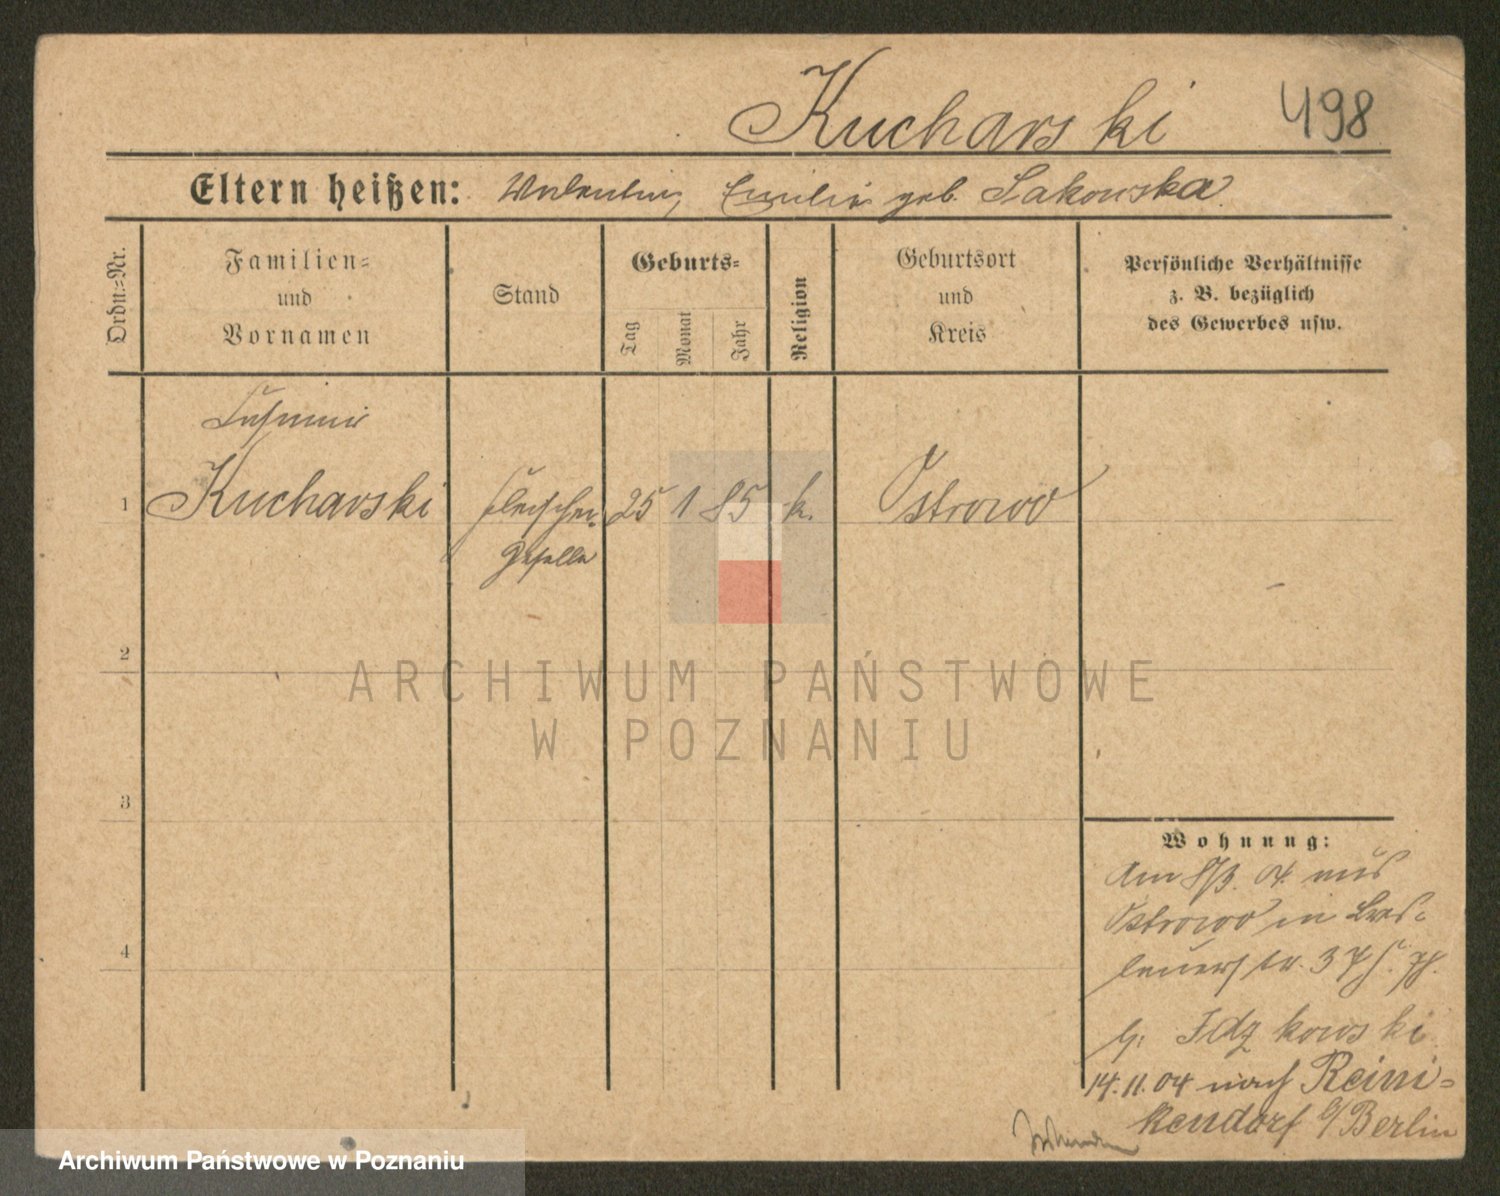 Kucharski 498
Eltern heißen: Valentin, Emilie geb. Sakowska
Ordn.=Nr.
Familien=
und
Vornamen
Stand
Geburts=
Tag
Monat
Jahr
Religion
Geburtsort
und
Kreis
Persönliche Verhältnisse
z. B. bezüglich
des Gewerbes usw.
Casimir
1 Kucharski Fleischer 25 1 85 k. Ostrowo
Geselle
2
ARCHIWUM PAŃSTWOWE
W POZNANIU
3
4
Wohnung:
Am 8/3. 04. aus
Ostrowo in Bres=
lauerstr. 37
b. Idzkowski
14.11.04 nach Reini=
kendorf b/Berlin
Archiwum Państwowe w Poznaniu